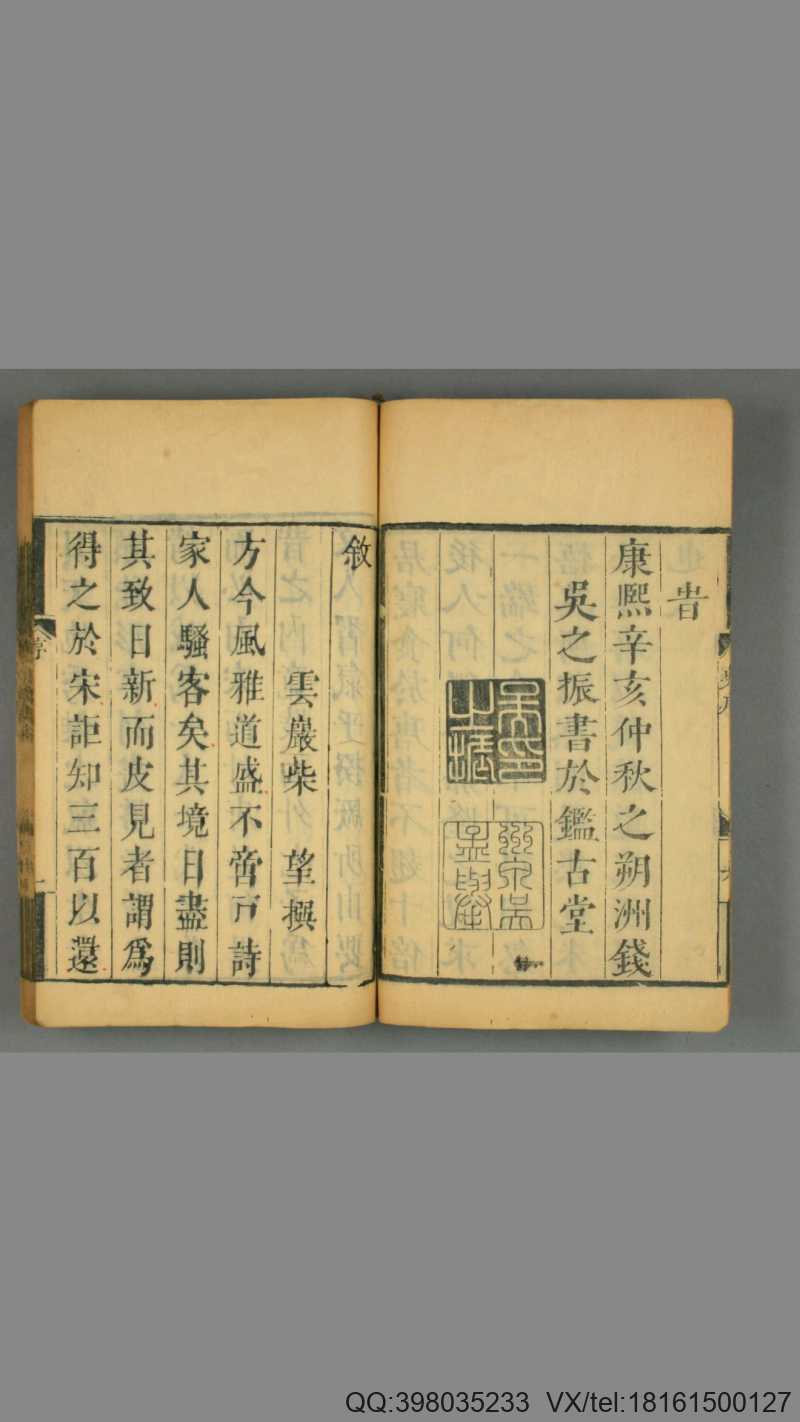 旹
康熙辛亥仲秋之朔洲錢
吳之振書於鑑古堂
敘
雲巖柴 望撰
方今風雅道盛不啻戸詩
家人騷客矣其境日盡則
其致日新而皮見者謂爲
得之於宋詎知三百以還
序
一
QQ:398035233 VX/tel:18161500127